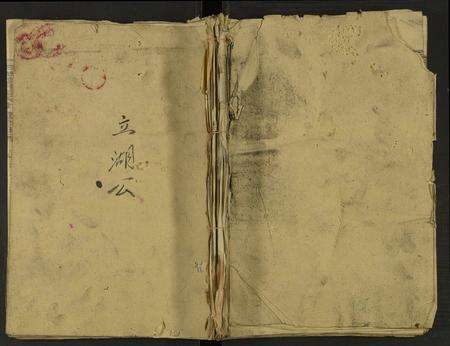 立湖公